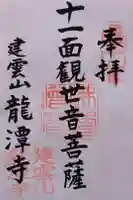 奉拝
十一面観世音菩薩
建雲山龍潭寺